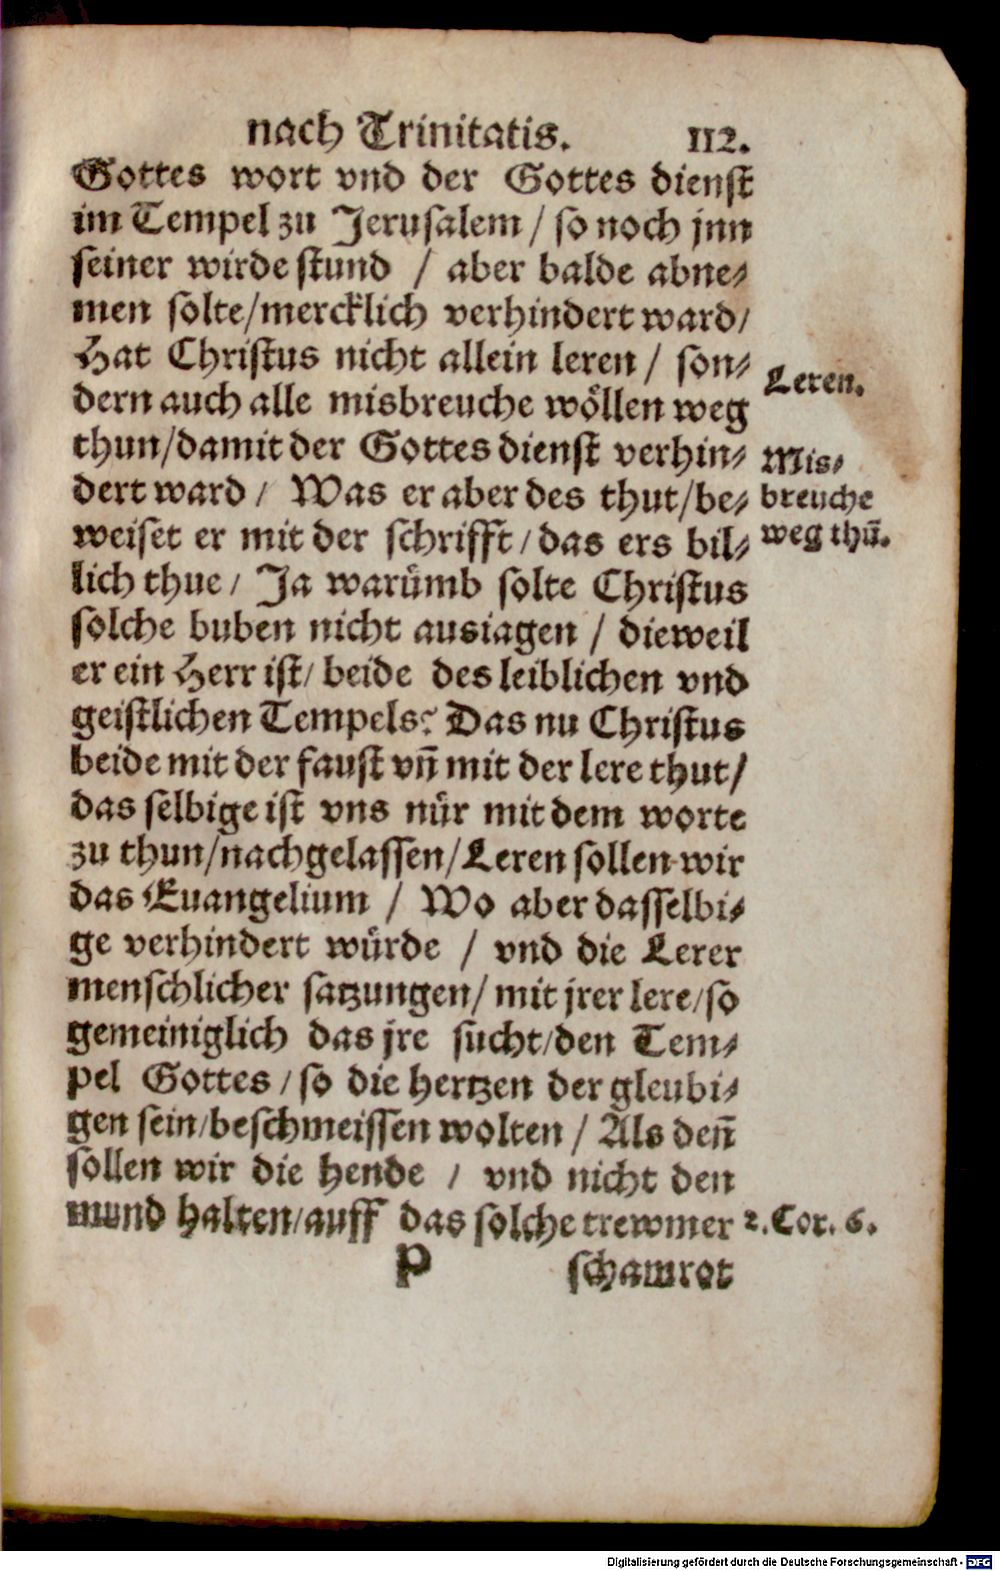 nach Trinitatis. 112.
Gottes wort vnd der Gottes dienst
im Tempel zu Jerusalem / so noch jnn
seiner wirde stund / aber balde abne-
men solte/mercklich verhindert ward/
Hat Christus nicht allein leren / son-
dern auch alle misbreuche wöllen weg
thun/damit der Gottes dienst verhin-
dert ward / Was er aber des thut/be-
weiset er mit der schrifft/das ers bil-
lich thue / Ja warümb solte Christus
solche buben nicht ausiagen / dieweil
er ein Herr ist/ beide des leiblichen vnd
geistlichen Tempels? Das nu Christus
beide mit der faust vn̄ mit der lere thut/
das selbige ist vns nür mit dem worte
zu thun/nachgelassen/Leren sollen wir
das Euangelium / Wo aber dasselbi-
ge verhindert würde / vnd die Lerer
menschlicher satzungen/ mit jrer lere/so
gemeiniglich das jre sucht/den Tem-
pel Gottes / so die hertzen der gleubi-
gen sein/beschmeissen wolten / Als den̄
sollen wir die hende / vnd nicht den
mund halten/auff das solche trewmer
P schamrot
Leren.
Mis-
breuche
weg thū.
2. Cor. 6.
Digitalisierung gefördert durch die Deutsche Forschungsgemeinschaft - DFG